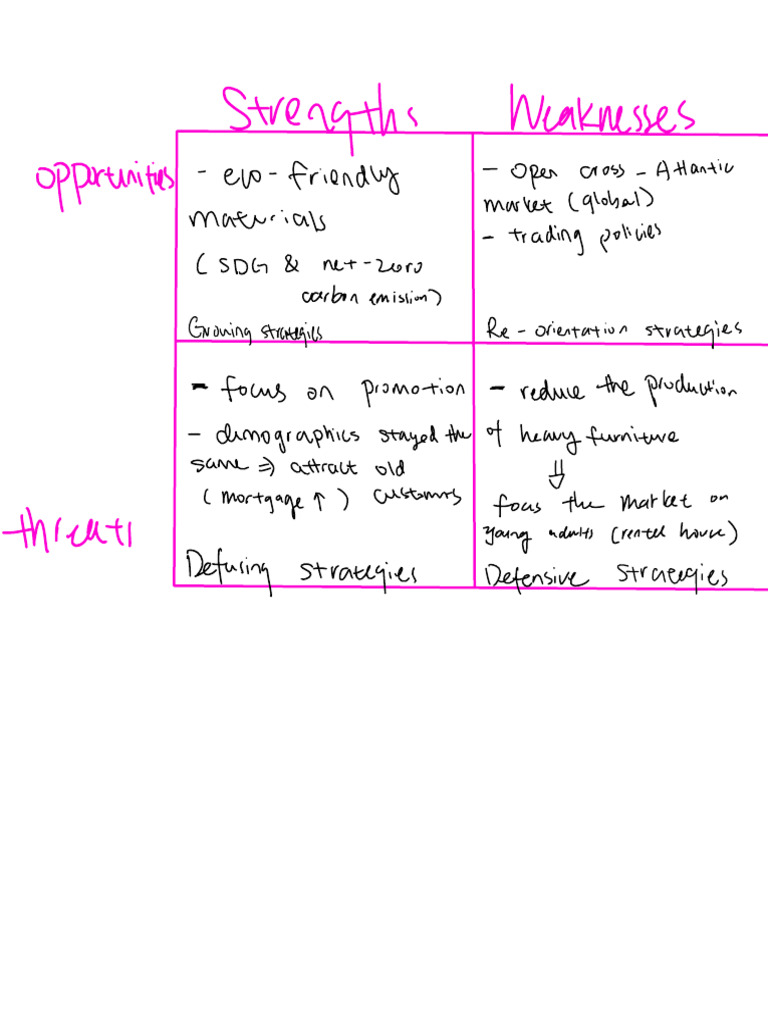 Strengths
Weaknesses
opportunities
- eco-friendly
materials
(SDG & net-zero
carbon emission)
Growing strategies
- Open cross-Atlantic
market (global)
- trading policies
Re-orientation strategies
threats
- focus on promotion
- demographics stayed the
same ⇒ attract old
(mortgage ↑) customers
Defusing strategies
- reduce the production
of heavy furniture
⇓
focus the market on
young adults (rented house)
Defensive strategies